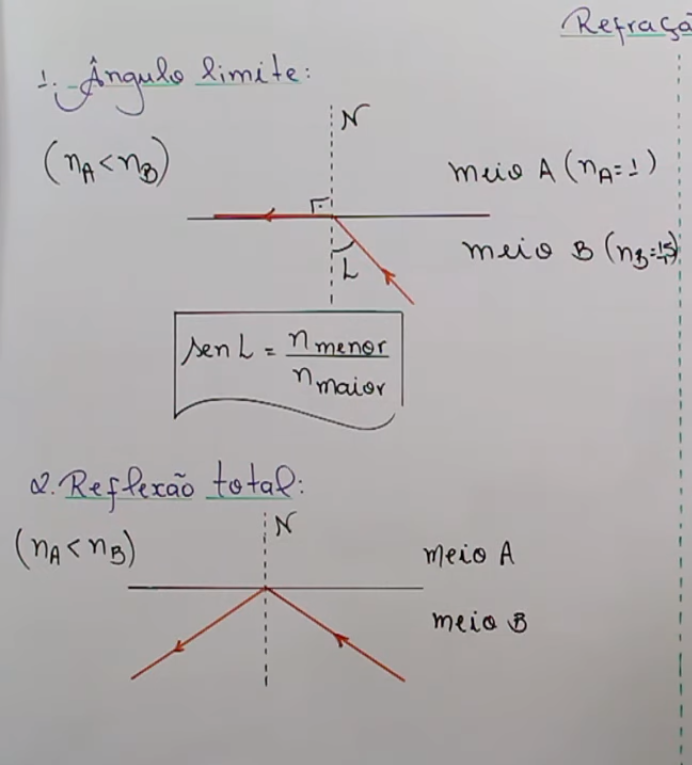 Refraçã
1. Ângulo limite:
N
(nA < nB)
meio A (nA = 1)
meio B
L
sen L = n menor / n maior
2. Reflexão total:
N
(nA < nB)
meio A
meio B